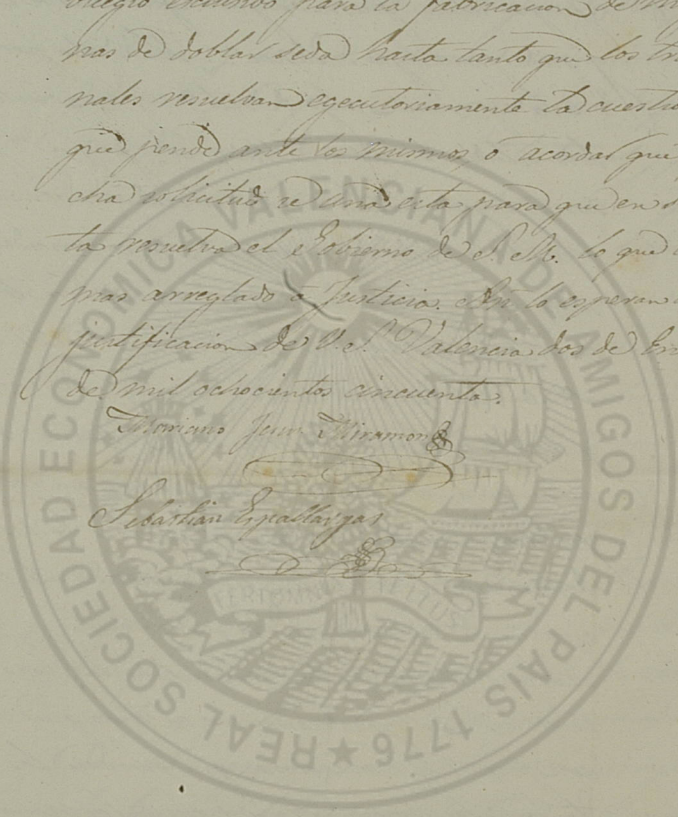 vilegio esclusivo para la fabricacion de
nas de doblar seda hasta tanto que los tri
nales resuelvan egecutoriamente la cuesti
que pende ante los mismos, o acordar que
cha solicitud se una a esta para que en
ta resuelva el Gobierno de S. M. lo que
mas arreglado a Justicia. Asi lo esperan
justificacion de V. S. Valencia dos de En
de mil ochocientos cincuenta.
Mariano Miramon
Sebastian Espallargas
REAL SOCIEDAD ECONOMICA VALENCIANA DE AMIGOS DEL PAIS 1776